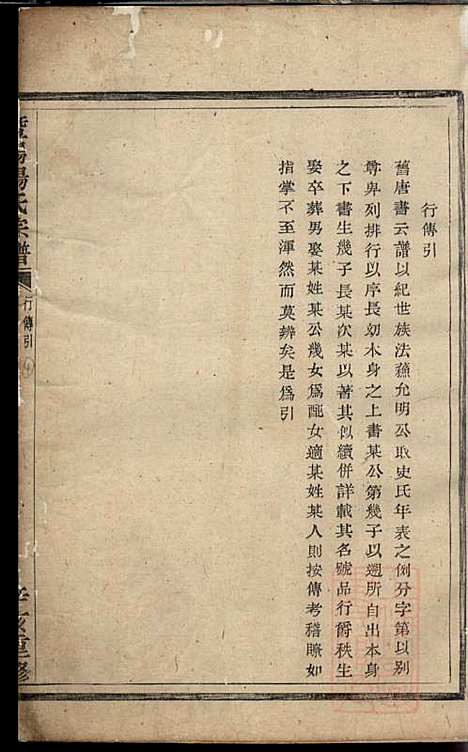 行傳引
舊唐書云譜以紀世族法蘓允明公取史氏年表之例分字第以別
尊卑列排行以序長幼本身之上書某公第幾子以遡所自出本身
之下書生幾子長某次某以著其似續併詳載其名號品行爵秩生
娶卒葬男娶某姓某公幾女為配女適某姓某人則按傳考稽瞭如
指掌不至渾然而莫辨矣是為引
暨陽楊氏宗譜
行傳引
重修